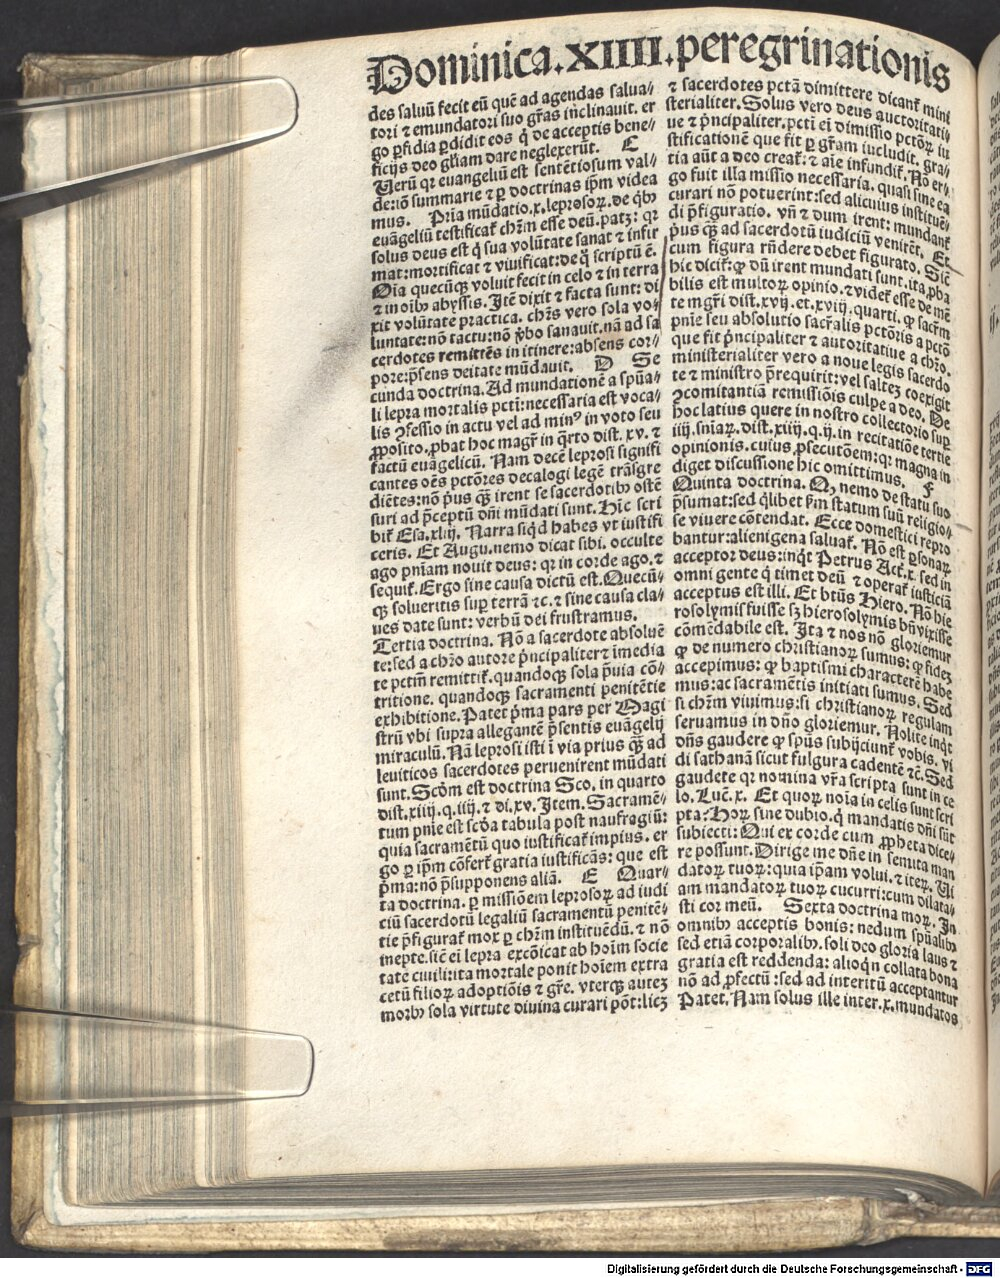 Dominica.XIIII.peregrinationis
des saluū fecit eū quē ad agendas salua⸗
tori ⁊ emundatori suo grās inclinauit. er
go ꝑfidia ꝑdidit eos q̇ de acceptis bene⸗
ficijs deo grāam dare neglexerūt. C
Uerū qꝛ euangeliū est sentētiosum val⸗
de: iō summarie ⁊ ꝑ doctrinas ipm videa
mus. Pria mūdatio.x.leprosoꝝ.de qb9
euāgeliū testificat chrm esse deū.patz: qꝛ
solus deus est q̇ sua volūtate sanat ⁊ infir
mat: mortificat ⁊ viuificat: de q̇ scriptū ē.
Oīa quecūqꝫ voluit fecit in celo ⁊ in terra
⁊ in oīb9 abyssis. Itē dixit ⁊ facta sunt: di
xit volūtate practica. chrs vero sola vo⸗
luntate: nō tactu: nō v̄bo sanauit. nā ad sa
cerdotes remittēs in itinere: absens cor⸗
pore: p̄sens deitate mūdauit. D Se
cunda doctrina. Ad mundationē a spūa⸗
li lepra mortalis pcti: necessaria est voca⸗
lis ꝯfessio in actu vel ad min9 in voto seu
ꝓposito. ꝓbat hoc magr̄ in q̄rto dist. xv. ⁊
factū euāgelicū. Nam decē leprosi signifi
cantes oēs pctōres decalogi legē trāsgre
diētes: nō p̄us qꝫ irent se sacerdotib9 ostē
suri ad p̄ceptū dn̄i mūdati sunt. Hic scri
bit Esa.xliij. Narra siqd habes vt iustifi
ceris. Et Augu. nemo dicat sibi. occulte
ago pn̄iam nouit deus: qꝛ in corde ago. ⁊
sequit. Ergo sine causa dictū est. Quecū⸗
qꝫ solueritis sup terrā ⁊c. ⁊ sine causa cla⸗
ues date sunt: verbū dei frustramus.
Tertia doctrina. Nō a sacerdote absoluē
te: sed a chr̄o autore p̄ncipaliter ⁊ īmedia
te pctm̄ remittit. quandoqꝫ sola p̄uia cō⸗
tritione. quandoqꝫ sacramenti penitētie
exhibitione. Patet p̄ma pars per Magi
strū vbi supra allegantē p̄sentis euāgelij
miraculū. Nā leprosi isti ī via prius qꝫ ad
leuiticos sacerdotes peruenirent mūdati
sunt. Scōm est doctrina Sco. in quarto
dist. xiiij. q. iiij. ⁊ di. xv. Item. Sacramē⸗
tum pn̄ie est scda tabula post naufragiū:
quia sacramētū quo iustificat impius. er
go ꝑ ipm cōfert gratia iustificās: que est
p̄ma: nō p̄supponens aliā. E Quar⸗
ta doctrina. ꝑ missiōem leprosoꝝ ad iudi
ciū sacerdotū legaliū sacramentū penitē⸗
tie p̄figurat mox ꝑ chr̄m instituēdū. ⁊ nō
inepte. sic ei lepra excōicat ab hoīm socie
tate ciuili: ita mortale ponit hoīem extra
cetū filioꝝ adoptiōis ⁊ gr̄e. vterqꝫ autez
morb9 sola virtute diuina curari pōt: licz
⁊ sacerdotes pctā dimittere dicant mini
sterialiter. Solus vero deus auctoritati⸗
ue ⁊ p̄ncipaliter. pcti ei dimissio pctōꝝ iu
stificationē que fit ꝑ gr̄am includit. gra⸗
tia aūt a deo creat: ⁊ aīe infundit. Nō er⸗
go fuit illa missio necessaria. quasi sine ea
curari nō potuerint: sed alicuius instituē⸗
di p̄figuratio. vn̄ ⁊ dum irent: mundant
p̄us qꝫ ad sacerdotū iudiciū venirēt. Et
cum figura rn̄dere debet figurato. Sic
hic dicit: ꝙ dū irent mundati sunt. ita ꝓba
bilis est multoꝝ opinio. ⁊ videt esse de mē
te mgr̄i dist. xvij. et. xviij. quarti. ꝙ sacr̄m
pn̄ie seu absolutio sacr̄alis pctōris a pctō
que fit p̄ncipaliter ⁊ autoritatiue a chr̄o.
ministerialiter vero a noue legis sacerdo
te ⁊ ministro p̄requirit: vel saltez coexigit
ꝯcomitantiā remissiōis culpe a deo. De
hoc latius quere in nostro collectorio sup
iiij. sn̄iaꝝ. dist. xiiij. q. ij. in recitatiōe tertie
opinionis. cuius ꝓsecutōem: qꝛ magna in
diget discussione hic omittimus. F
Quinta doctrina. Q nemo de statu suo
p̄sumat: sed q̇libet fm statum suū religio⸗
se viuere cōtendat. Ecce domestici repro
bantur: alienigena saluat. Nō est ꝑsonaꝝ
acceptor deus: inqt Petrus Act. x. sed in
omni gente q̇ timet deū ⁊ operat iusticiā
acceptus est illi. Et btūs Hiero. Nō hie
rosolymis fuisse sꝫ hierosolymis bn̄ vixisse
cōmēdabile est. Ita ⁊ nos nō gloriemur
ꝙ de numero christianoꝝ sumus: ꝙ fidez
accepimus: ꝙ baptismi characterē habe
mus: ac sacramētis initiati sumus. Sed
si chr̄m viuimus: si christianoꝝ regulam
seruamus in dn̄o gloriemur. Nolite inqt
dn̄s gaudere ꝙ spūs subijciunt vobis. vi
di sathanā sicut fulgura cadentē ⁊c. Sed
gaudete qꝛ nomina vr̄a scripta sunt in ce
lo. Luc. x. Et quoꝝ noīa in celis sunt scri
pta: Hoꝝ sine dubio. q̇ mandatis dn̄i sūt
subiecti: Qui ex corde cum ꝓpheta dice⸗
re possunt. Dirige me dn̄e in semita man
datoꝝ tuoꝝ: quia ip̄am volui. ⁊ iteꝝ. Ui
am mandatoꝝ tuoꝝ cucurri: cum dilata⸗
sti cor meū. Sexta doctrina moꝝ. In
omnib9 acceptis bonis: nedum spūalib9
sed etiā corporalib9. soli deo gloria laus ⁊
gratia est reddenda: alioqn̄ collata bona
nō ad ꝓfectū: sed ad interitū acceptantur
Patet. Nam solus ille inter. x. mundatos
Digitalisierung gefördert durch die Deutsche Forschungsgemeinschaft - DFG